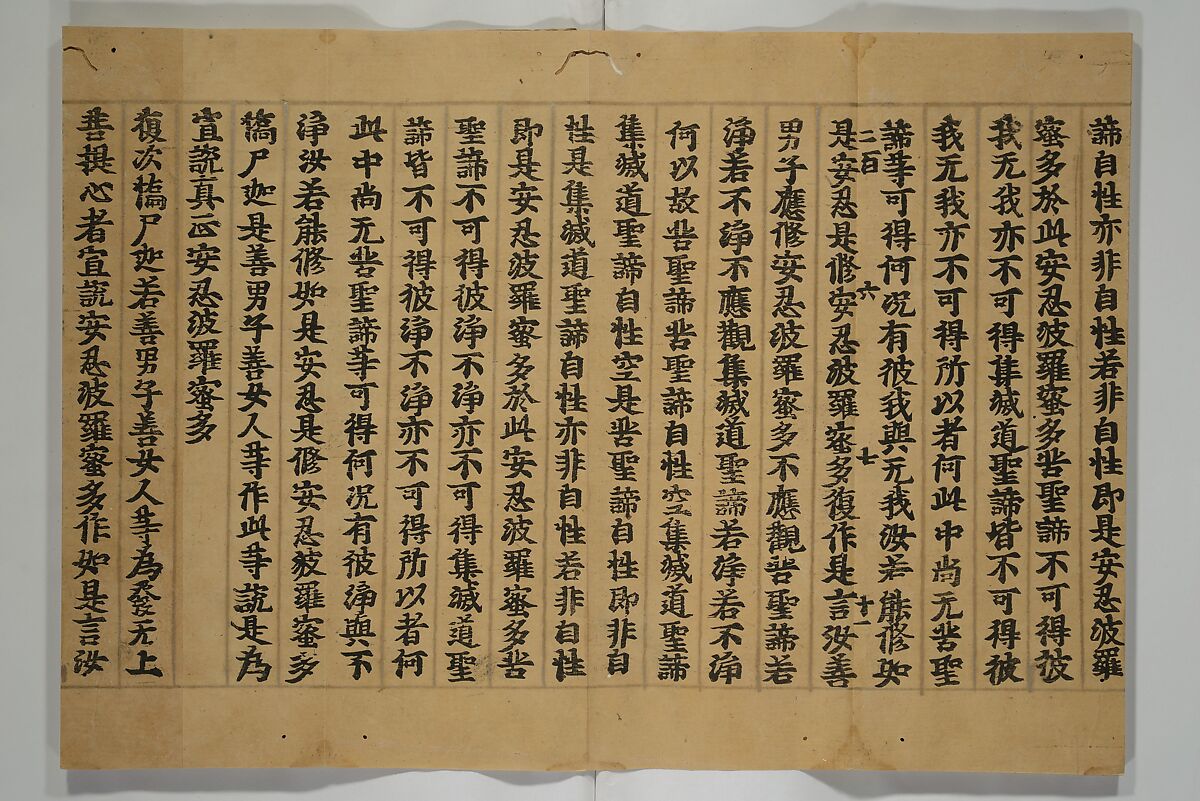 諦自性亦非自性若非自性即是安忍波羅
蜜多於此安忍波羅蜜多苦聖諦不可得彼
我无我亦不可得集滅道聖諦皆不可得彼
我无我亦不可得所以者何此中尚无苦聖
諦等可得何況有彼我與无我汝若能修如
二百六七十一
是安忍是修安忍波羅蜜多復作是言汝善
男子應修安忍波羅蜜多不應觀苦聖諦若
淨若不淨不應觀集滅道聖諦若淨若不淨
何以故苦聖諦苦聖諦自性空集滅道聖諦
集滅道聖諦自性空是苦聖諦自性即非自
性是集滅道聖諦自性亦非自性若非自性
即是安忍波羅蜜多於此安忍波羅蜜多苦
聖諦不可得彼淨不淨亦不可得集滅道聖
諦皆不可得彼淨不淨亦不可得所以者何
此中尚无苦聖諦等可得何況有彼淨與不
淨汝若能修如是安忍是修安忍波羅蜜多
憍尸迦是善男子善女人等作此等說是為
宣說真正安忍波羅蜜多
復次憍尸迦若善男子善女人等為發无上
菩提心者宣說安忍波羅蜜多作如是言汝